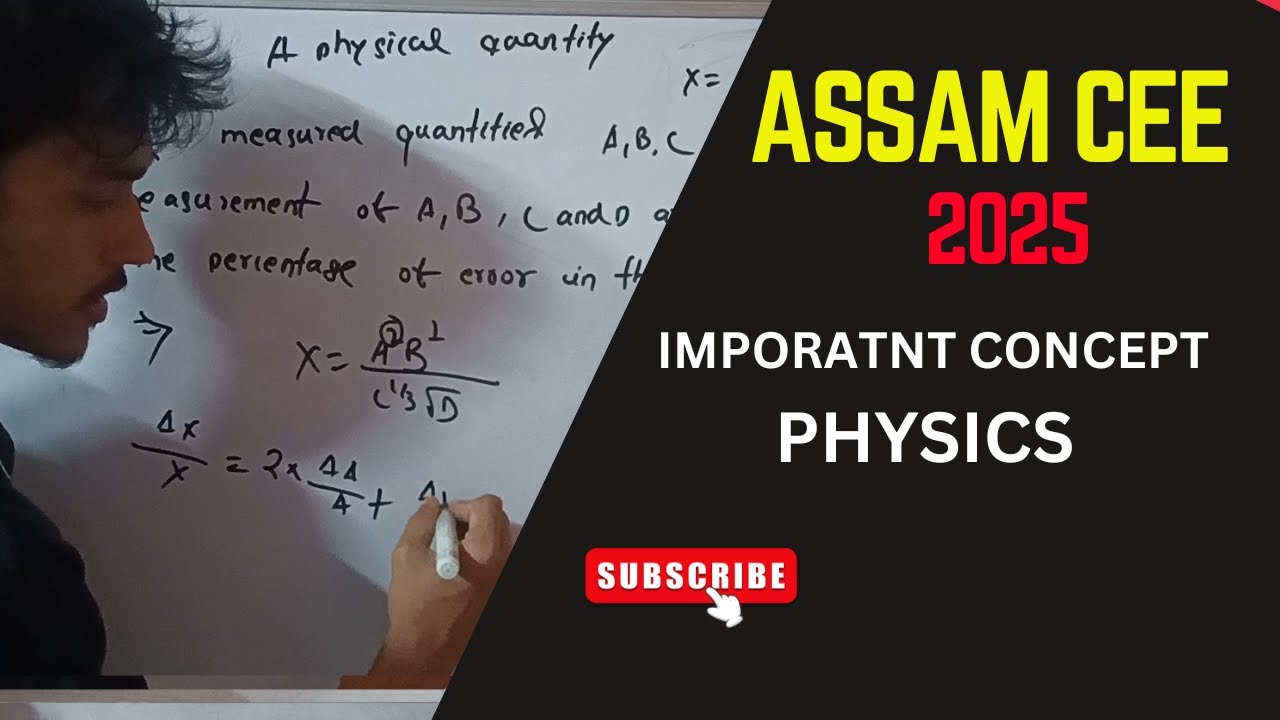 A physical quantity
X=
measured quantities A,B,C
easurement of A,B, C and D a
he percentage of error in th
⇒ X= A²B¹
C^1/3 √D
ΔX/X = 2× ΔA/A +
ASSAM CEE
2025
IMPORATNT CONCEPT
PHYSICS
SUBSCRIBE